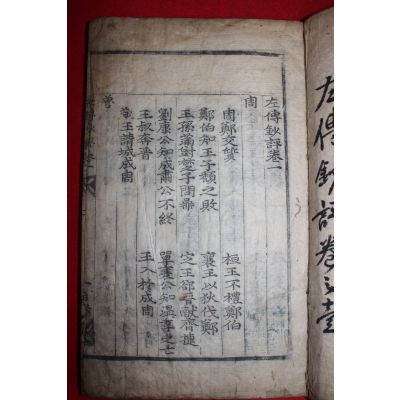 左傳鈔評卷之壹
左傳鈔評卷一
周
周鄭交質 桓王不禮鄭伯
鄭伯知王子頹之敗 襄王以狄伐鄭
王孫滿對楚子問鼎 定王卻晉獻齊捷
劉康公知成肅公不終 單襄公知
王叔奔晉 王入於成周
王請城成周